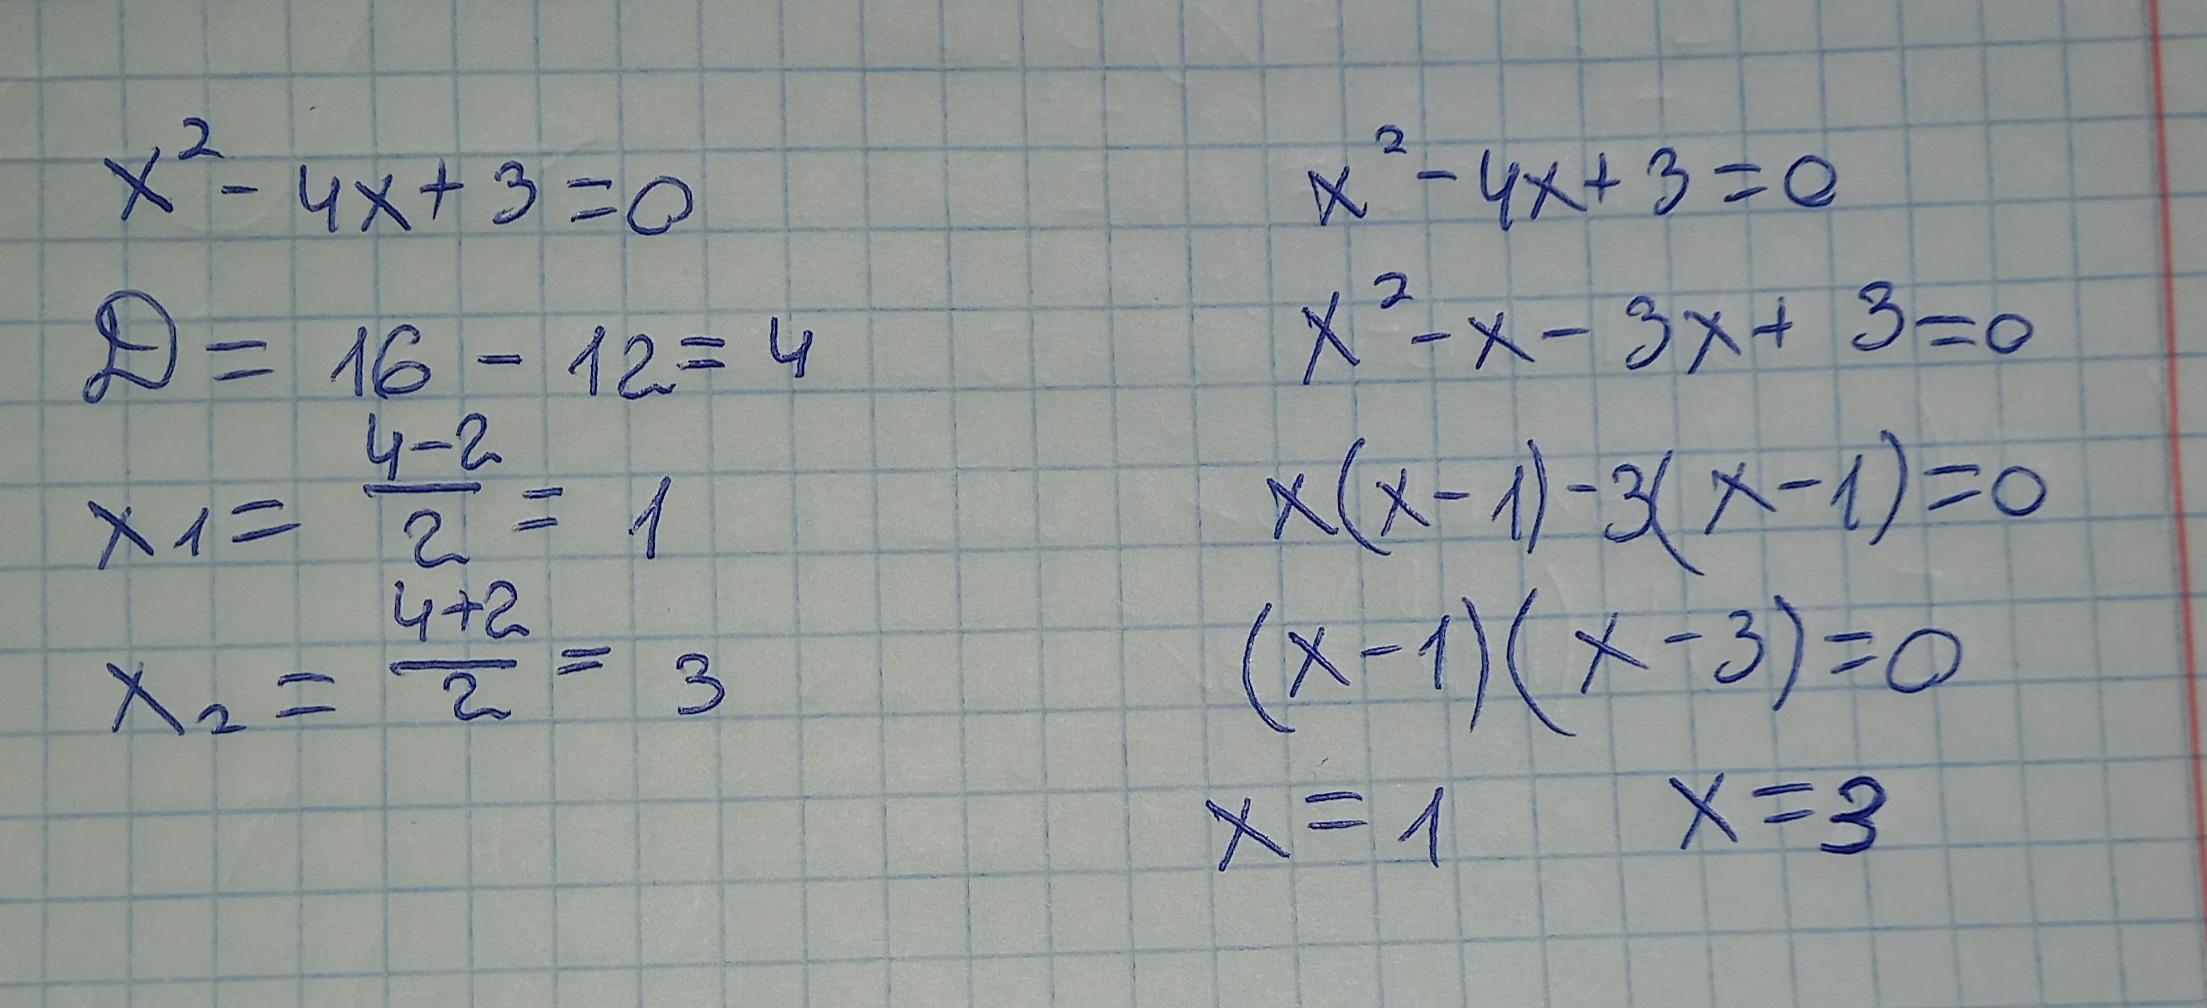 x² - 4x + 3 = 0
D = 16 - 12 = 4
x1 = (4-2)/2 = 1
x₂ = (4+2)/2 = 3
x² - 4x + 3 = 0
x² - x - 3x + 3 = 0
x(x - 1) - 3(x - 1) = 0
(x - 1)(x - 3) = 0
x = 1 x = 3